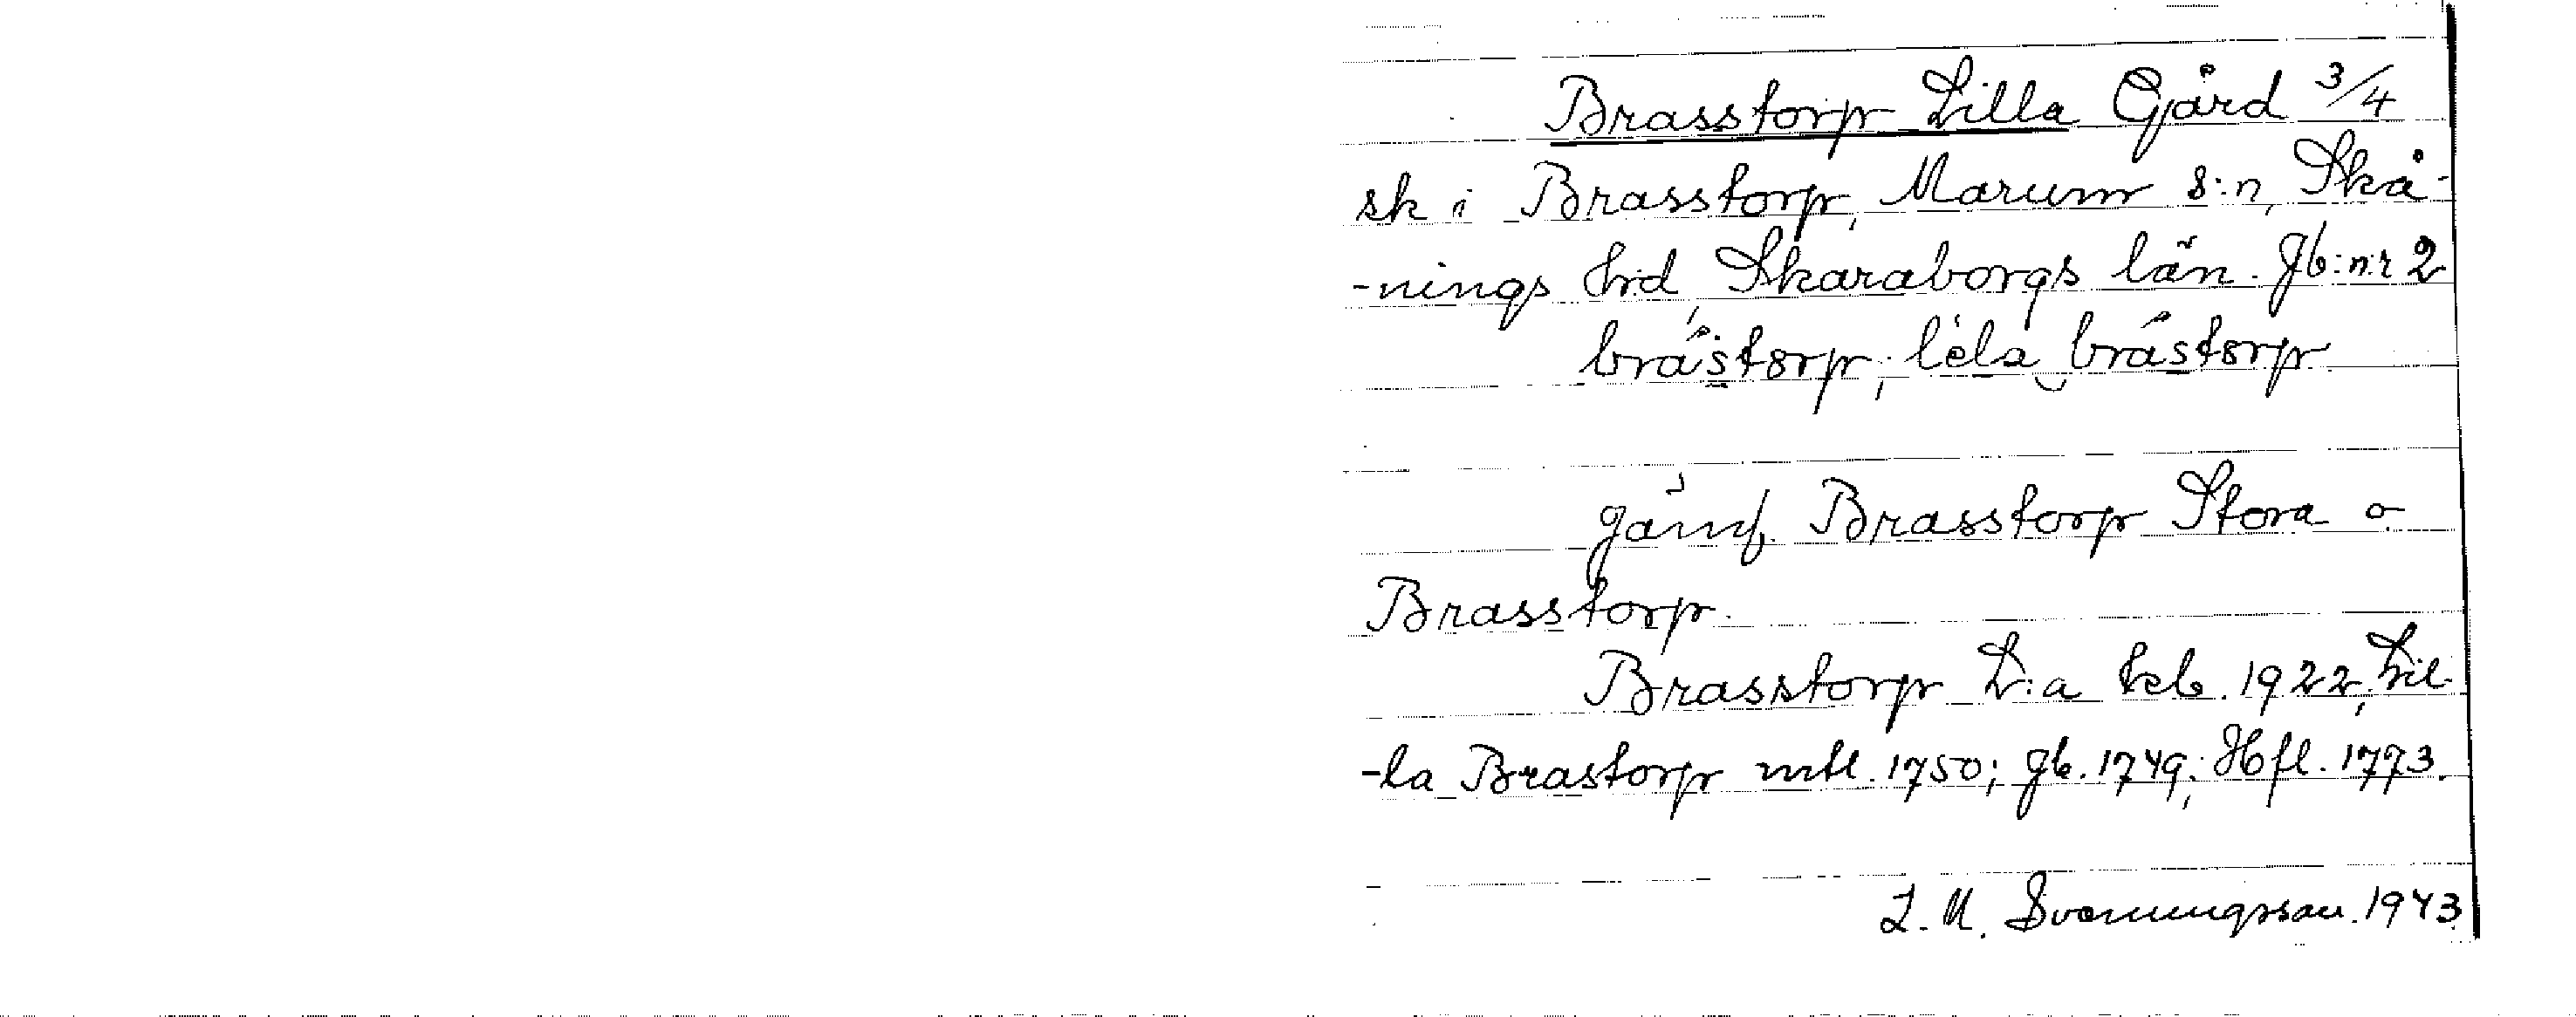 Brasstorp Lilla Gård 3/4
sk i Brasstorp, Marum s:n, Skå-
-nings hd, Skaraborgs län. Jb:nr 2
jämf. Brasstorp Stora o.
Brasstorp.
Brasstorp L:a kb. 1922, Lil-
-la Brastorp mtl. 1750; Jb. 1749; Hfl. 1773.
L. M. Svenungsson. 1943